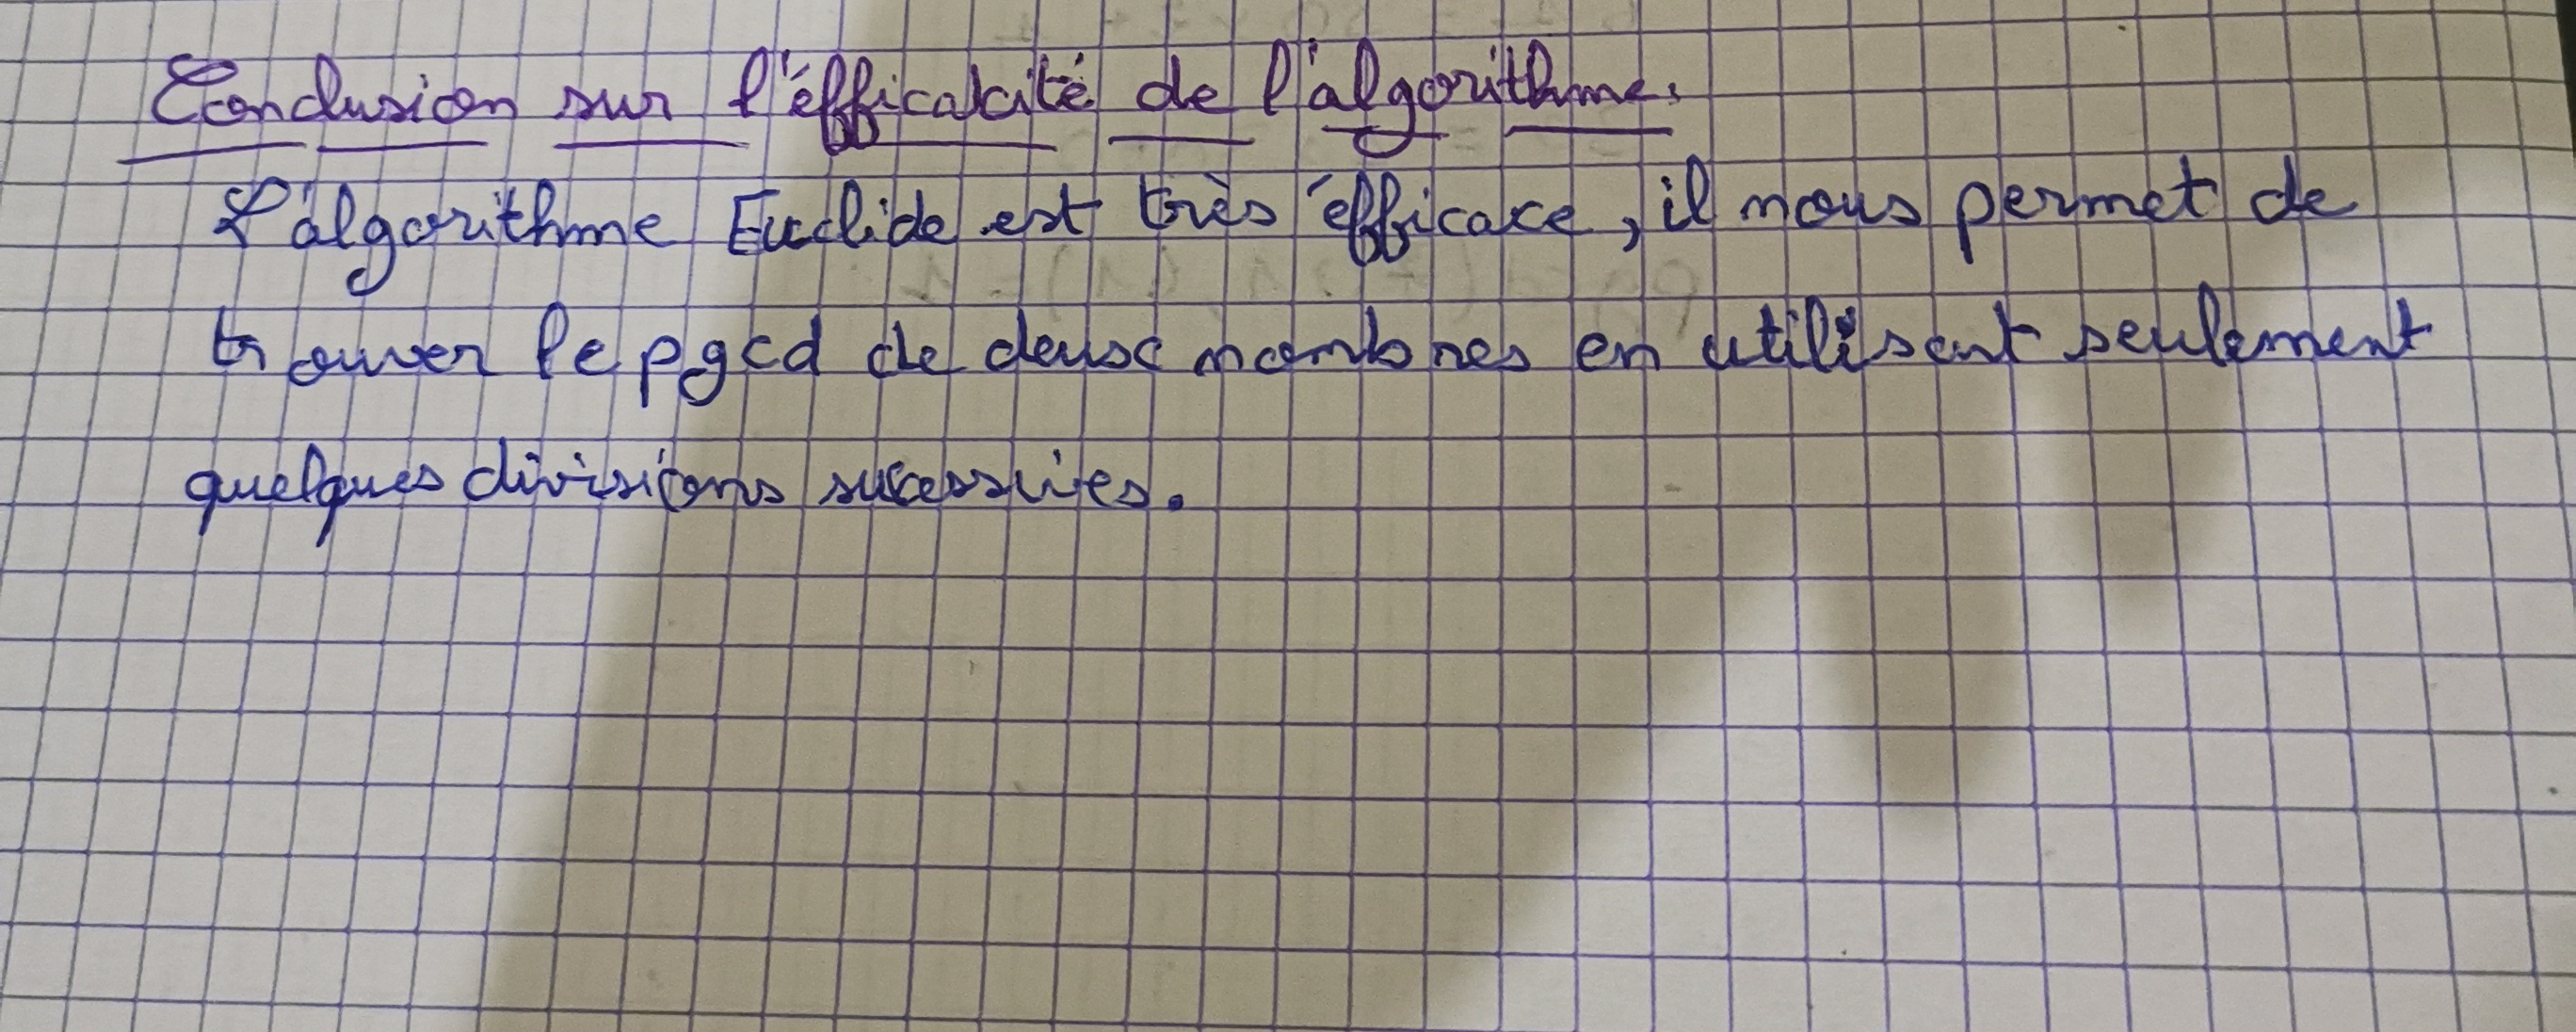 Conclusion sur l'éfficacité de l'algorithme.
L'algorithme Euclide est très éfficace, il nous permet de
trouver le pgcd de deux nombres en utilisant seulement
quelques divisions sucessives.